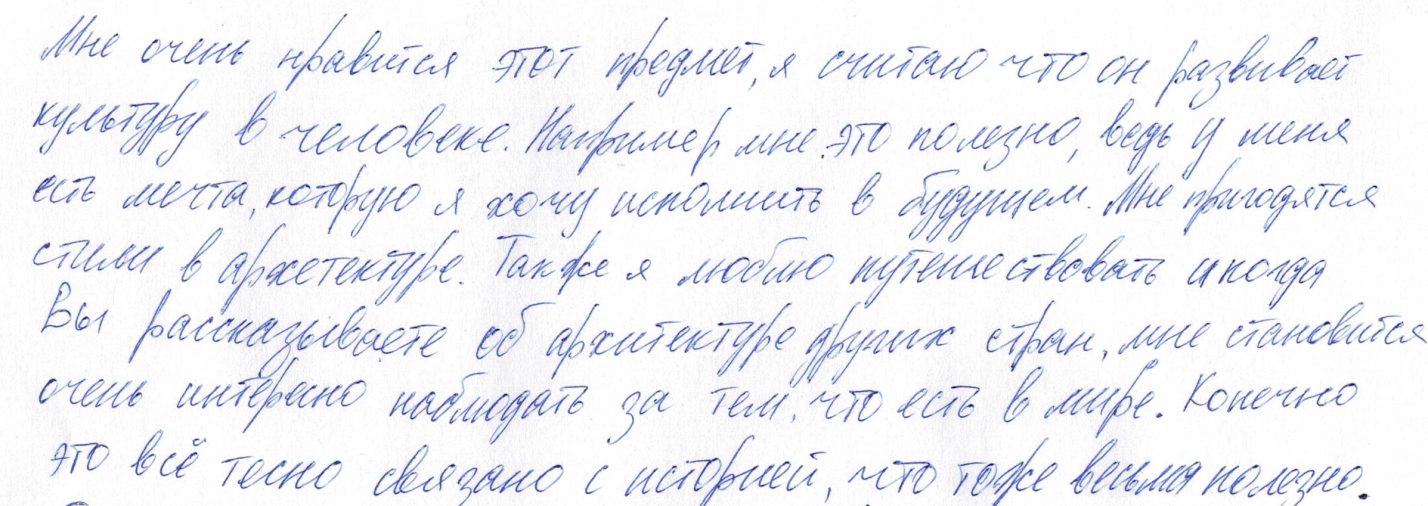 Мне очень нравится этот предмет, я считаю что он развивает
культуру в человеке. Например мне это полезно, ведь у меня
есть мечта, которую я хочу исполнить в будущем. Мне пригодятся
стили в архетектуре. Также я люблю путешествовать и когда
Вы рассказываете об архитектуре других стран, мне становится
очень интересно наблюдать за тем, что есть в мире. Конечно
это всё тесно связано с историей, что тоже весьма полезно.